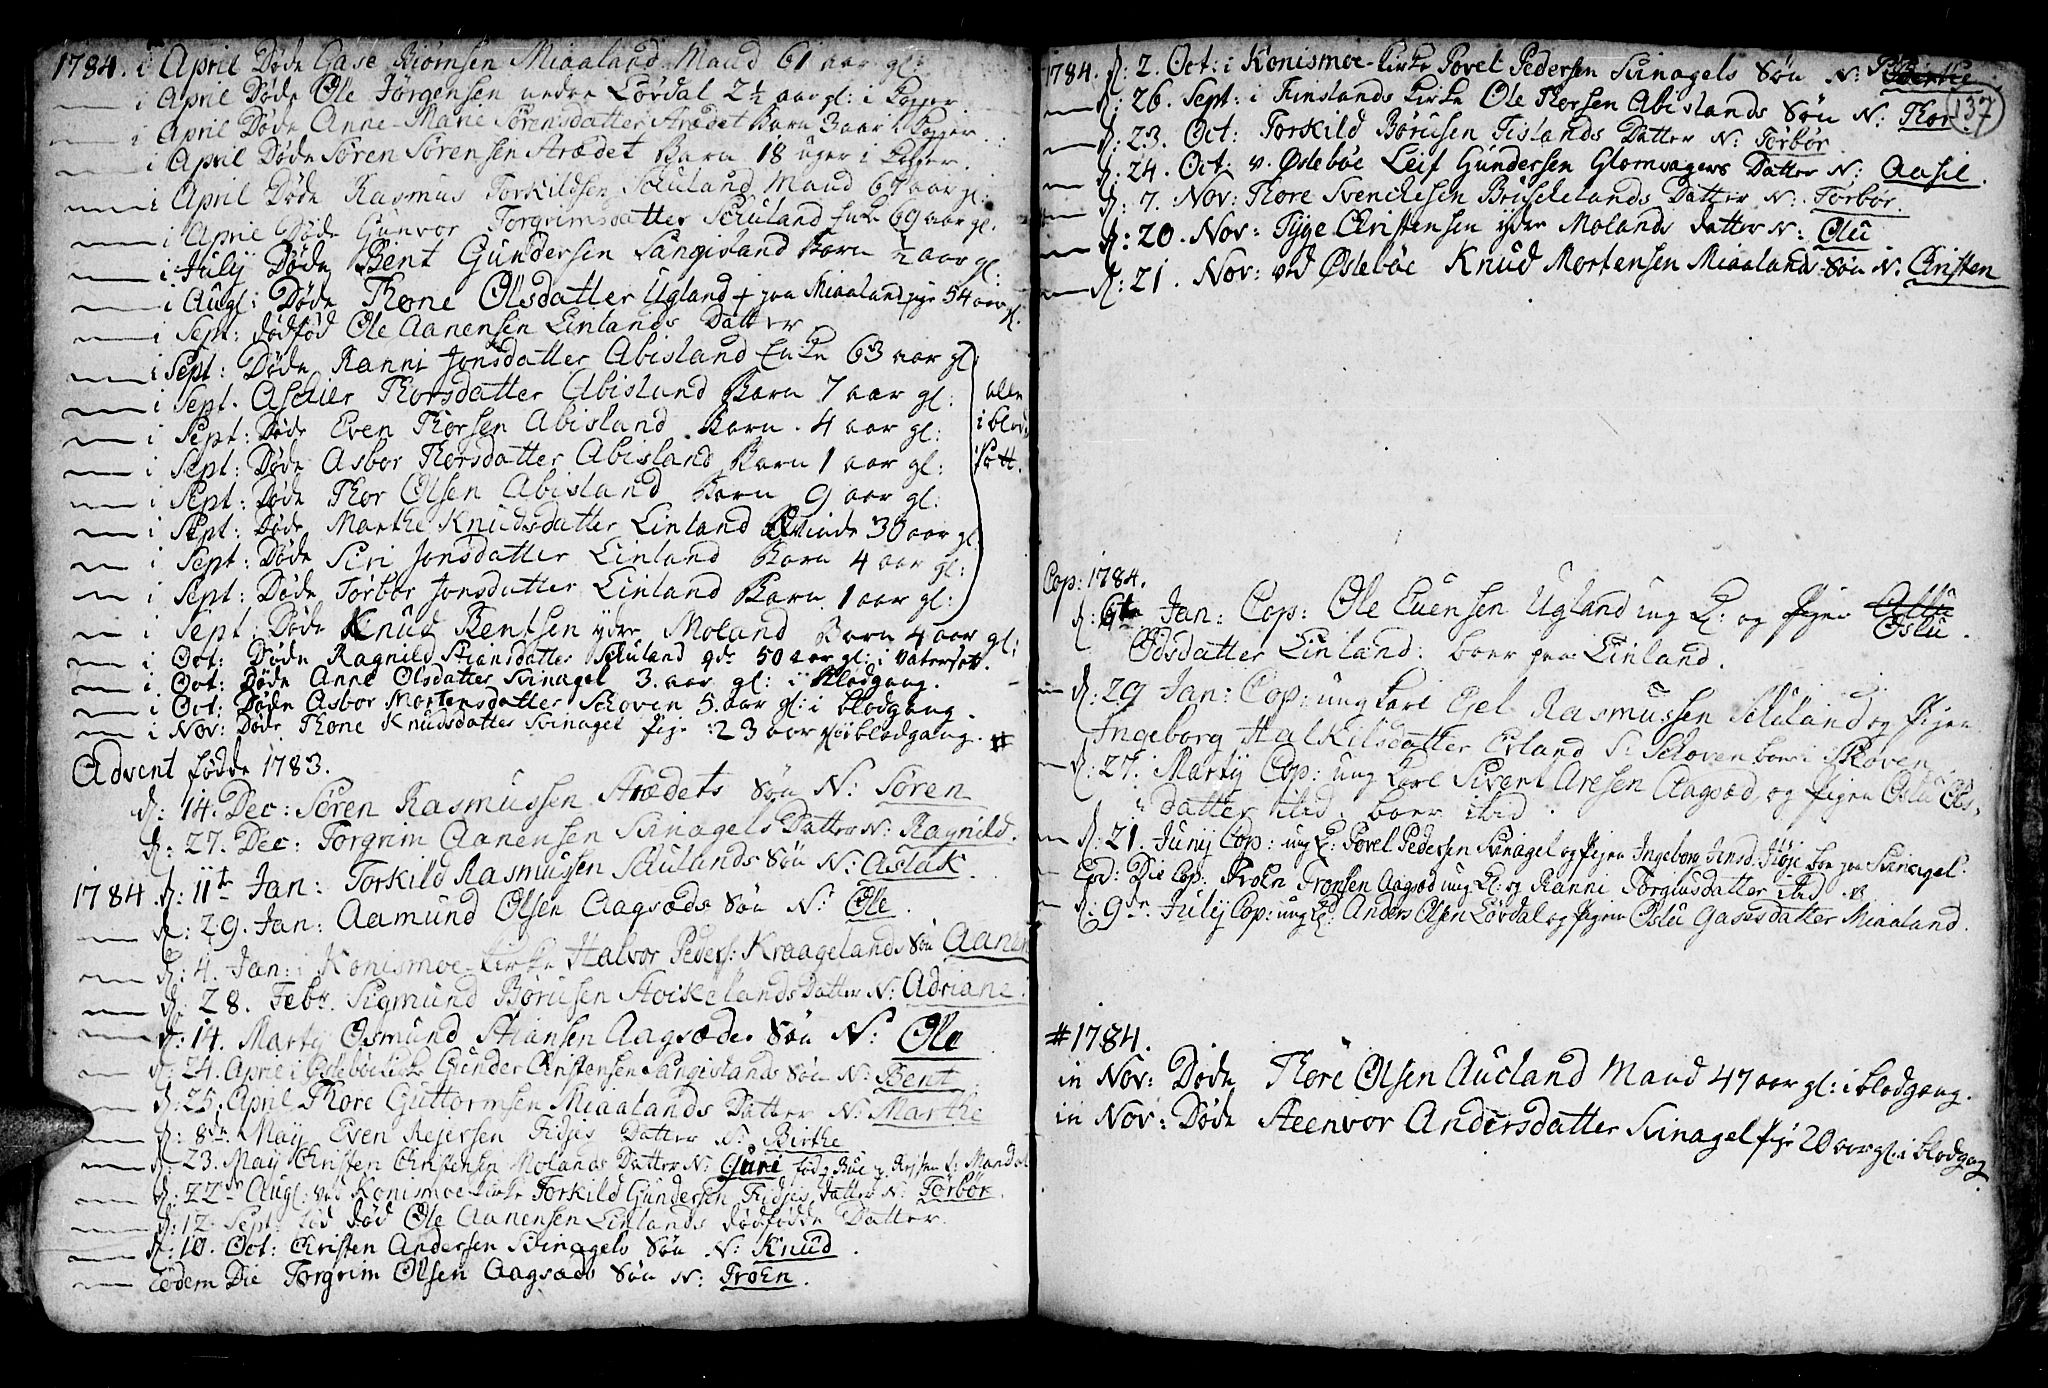 1784. i April Døde Gase Biørnsen Miaaland Mand 61 aar gl:
i April Døde Ole Jørgensen nedre Lørdal 2½ aar gl: i Kopper
i April Døde Anne-Marie Sørensdatter Strædet Barn 3 aar i Kopper
i April Døde Søren Sørensen Strædet Barn 18 uger i Kopper.
i April Døde Rasmus Torkildsen Schuland Mand 67 aar gl:
i April Døde Gunvor Torgrimsdatter Schuland Enke 69 aar gl.
i July Døde Bent Gundersen Sangesland Barn ½ aar gl:
i Augl: Døde Thone Olsdatter Ugland + paa Miaaland pige 54 aar gl.
i Sept: dødfød Ole Aanensen Einlands Datter
i Sept: Døde Ranni Jonsdatter Abisland Enke 63 aar gl:
i Sept. Aschier Thorsdatter Abisland Barn 7 aar gl:
i Sept: Døde Even Thorsen Abisland Barn 4 aar gl:
i Sept: Døde Asbor Thorsdatter Abisland Barn 1 aar gl:
i Sept: Døde Thor Olsen Abisland Barn 9 aar gl:
i Sept: Døde Marthe Knudsdatter Einland Qvinde 30 aar gl
i Sept: Døde Siri Jonsdatter Einland Barn 4 aar gl:
i Sept: Døde Torbor Jonsdatter Einland Barn 1 aar gl:
alle
i blod
sott.
i Sept: Døde Knud Bentsen ydre Moland Barn 4 aar gl:
i Oct: Døde Ragnild Stiansdatter Schuland qde 50 aar gl: i Vatersot.
i Oct: Døde Anne Olsdatter Svinagel 3. aar gl: i Blodgang.
i Oct: Døde Asbor Mortensdatter Schoven 5. aar gl: i blodgang.
i Nov: Døde Thone Knudsdatter Svinagel Pige: 23 aar gl: i blodgang. #
Advent fødde 1783.
d: 14. Dec: Søren Rasmussen Strædets Søn N: Søren
d: 27. Dec: Torgrim Aanensen Svinagels Datter N: Ragnild.
1784 d: 11te Jan: Torkild Rasmussen Schulands Søn N: Aslak.
d: 29. Jan: Aamund Olsen Aagsæds Søn N: Ole.
d: 4. Jan: i Konismoe-kirke Halvor Peders: Kraagelands Søn Aanen
d. 28. Febr. Sigmund Børusen Stockelands Datter N: Adriane.
d: 14. Marty Osmund Stiansen Aagsæds Søn N: Ole
d: 24. April i Øslebøe kirke Gunder Christensen Sangislands Søn N: Bent.
d: 25. April Thore Guttormsen Miaalands Datter N: Marthe
d: 8de May Even Rejersen Fidjes Datter N: Birthe
d: 23. May Christen Christensen Molands Datter N: Guri fød p Bue p. Rejsen t: Mandal
d: 22de Augl: ved Konismoe-kirke Torkild Gundersen Fidjes Datter N: Torbor.
d: 12. Sept: Ole Aanensen Einlands dødfødde Datter.
d: 10. Oct: Christen Andersen Svinagels Søn N: Knud.
Eodem Die Torgrim Olsen Aagsæds Søn N: Troen.
1784. d: 2. Oct: i Konismoe-kirke Povel Pedersen Svinagels Søn N: Birthe
137
d: 26. Sept: i Finslands kirke Ole Thorsen Abislands Søn N: Thor.
d: 23. Oct: Torkild Børusen Fislands Datter N: Torbor
d: 24. Oct: v. Øslebøe Leif Gundersen Glomvagers Datter N: Aasil.
d: 7. Nov: Thore Svenchesen Bruskelands Datter N: Torbor.
d: 20. Nov: Tyge Christensen ydre Molands datter N: Oslu
d: 21. Nov: ved Øslebøe Knud Mortensen Miaalands Søn N: Christen
Cop: 1784.
d: 6te Jan: Cop: Ole Evensen Ugland ung K: og Pigen Oslu.
Odsdatter Einland: boer paa Einland.
d: 29 Jan: Cop: ung karl Rasmussen Schuland og Pigen
Ingeborg Halkilsdatter Erland Schoven boer i Skoven
d: 27. Marty Cop: ung Karl Sivert Aresen Aagsæd, og Pigen Oslu Ols-
datter ibid, boer ibid.
d: 21. Juny Cop: ung K: Povel Pedersen Svinagel og Pigen Ingeborg Jensd: Høje boe paa Svinagel:
Eod: Die Cop: Troen Tronsen Aagsæd ung K: og Ranni Torgiusdatter ibid.
d: 9de July Cop: ung K: Anders Olsen Lørdal og Pigen Oslu Gasesdatter Miaaland.
#1784.
in Nov: Døde Thore Olsen Aucland Mand 47 aar gl: i blodgang.
in Nov: Døde Steenvor Andersdatter Svinagel pige 20 aar gl: i blodgang